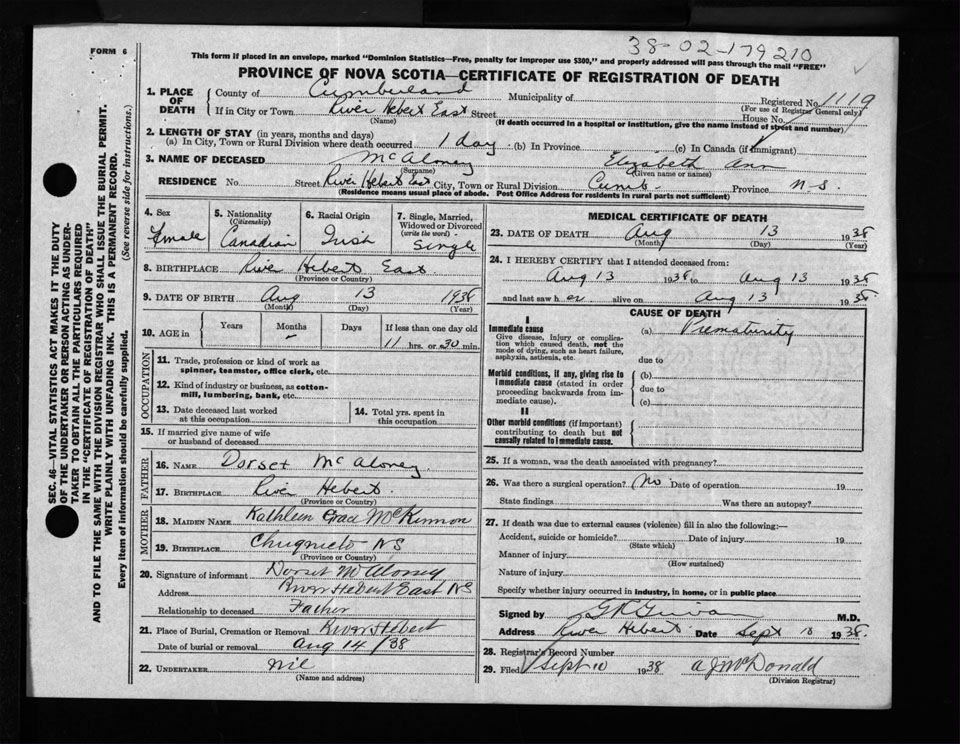 38-02-179210
FORM 6
This form if placed in an envelope, marked "Dominion Statistics—Free, penalty for improper use $300," and properly addressed will pass through the mail "FREE"
PROVINCE OF NOVA SCOTIA—CERTIFICATE OF REGISTRATION OF DEATH
SEC. 46—VITAL STATISTICS ACT MAKES IT THE DUTY
OF THE UNDERTAKER OR PERSON ACTING AS UNDER-
TAKER TO OBTAIN ALL THE PARTICULARS REQUIRED
IN THE "CERTIFICATE OF REGISTRATION OF DEATH"
AND TO FILE THE SAME WITH THE DIVISION REGISTRAR WHO SHALL ISSUE THE BURIAL PERMIT.
WRITE PLAINLY WITH UNFADING INK. THIS IS A PERMANENT RECORD.
Every item of information should be carefully supplied. (See reverse side for instructions.)
1. PLACE OF DEATH
County of Cumberland Municipality of Registered No. 1119
(For use of Registrar General only)
If in City or Town River Hebert East Street House No.
(Name) (If death occurred in a hospital or institution, give the name instead of street and number)
2. LENGTH OF STAY (in years, months and days)
(a) In City, Town or Rural Division where death occurred 1 day (b) In Province (c) In Canada (if immigrant)
3. NAME OF DECEASED McAloney Elizabeth Ann
(Surname) (Given name or names)
RESIDENCE No. Street River Hebert East City, Town or Rural Division Cumb. Province N-S.
(Residence means usual place of abode. Post Office Address for residents in rural parts not sufficient)
4. Sex
Female
5. Nationality
(Citizenship)
Canadian
6. Racial Origin
Irish
7. Single, Married, Widowed or Divorced
(write the word)
Single
8. BIRTHPLACE River Hebert East
(Province or Country)
9. DATE OF BIRTH Aug 13 1938
(Month) (Day) (Year)
10. AGE in Years Months Days If less than one day old
11 hrs. or 30 min.
OCCUPATION
11. Trade, profession or kind of work as
spinner, teamster, office clerk, etc.
12. Kind of industry or business, as cotton-
mill, lumbering, bank, etc.
13. Date deceased last worked
at this occupation
14. Total yrs. spent in
this occupation
15. If married give name of wife
or husband of deceased
FATHER
16. NAME Dorset McAloney
17. BIRTHPLACE River Hebert
(Province or Country)
MOTHER
18. MAIDEN NAME Kathleen Grace McKinnon
19. BIRTHPLACE Chignecto NS
(Province or Country)
20. Signature of informant Dorset McAloney
Address River Hebert East NS
Relationship to deceased Father
21. Place of Burial, Cremation or Removal River Hebert
Date of burial or removal Aug 14 / 38
22. UNDERTAKER Nil
(Name and address)
MEDICAL CERTIFICATE OF DEATH
23. DATE OF DEATH Aug 13 1938
(Month) (Day) (Year)
24. I HEREBY CERTIFY that I attended deceased from:
Aug 13 1938 to Aug 13 1938
and last saw her alive on Aug 13 1938
CAUSE OF DEATH
I
Immediate cause
Give disease, injury or complica-
tion which caused death, not the
mode of dying, such as heart failure,
asphyxia, asthenia, etc.
(a) Prematurity
due to
Morbid conditions, if any, giving rise to
immediate cause (stated in order
proceeding backwards from im-
mediate cause).
(b)
due to
(c)
II
Other morbid conditions (if important)
contributing to death but not
causally related to immediate cause.
25. If a woman, was the death associated with pregnancy?
26. Was there a surgical operation? No Date of operation 19
State findings Was there an autopsy?
27. If death was due to external causes (violence) fill in also the following:—
Accident, suicide or homicide? Date of injury 19
(State which)
Manner of injury
(How sustained)
Nature of injury
Specify whether injury occurred in industry, in home, or in public place
Signed by M.D.
Address River Hebert Date Sept 10 1938
28. Registrar's Record Number
29. Filed Sept 10 1938 A J McDonald
(Division Registrar)